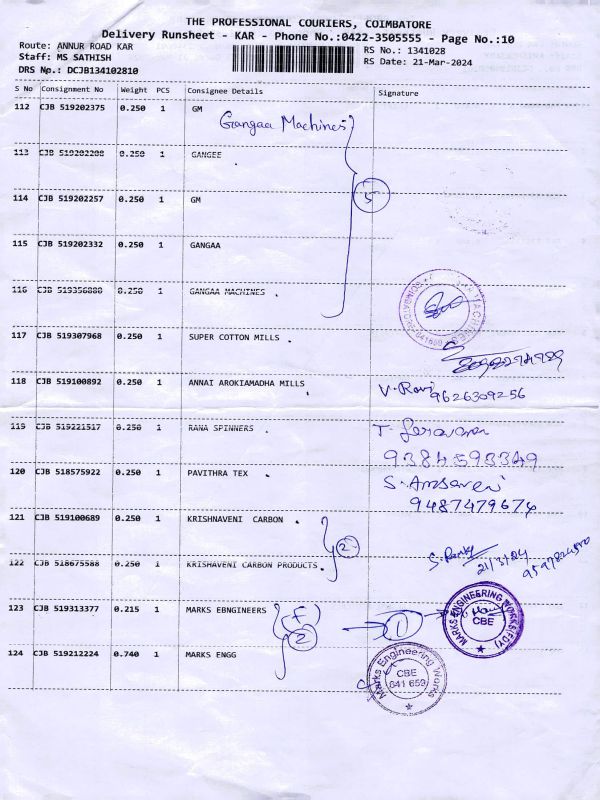 THE PROFESSIONAL COURIERS, COIMBATORE
Delivery Runsheet - KAR - Phone No.:0422-3505555 - Page No.:10
Route: ANNUR ROAD KAR
Staff: MS SATHISH
DRS Np.: DCJB134102810
RS No.: 1341028
RS Date: 21-Mar-2024
S No Consignment No Weight PCS Consignee Details Signature
112 CJB 519202375 0.250 1 GM
Gangaa Machines
113 CJB 519202208 0.250 1 GANGEE
114 CJB 519202257 0.250 1 GM
5
115 CJB 519202332 0.250 1 GANGAA
116 CJB 519356888 0.250 1 GANGAA MACHINES
117 CJB 519307968 0.250 1 SUPER COTTON MILLS
118 CJB 519100892 0.250 1 ANNAI AROKIAMADHA MILLS
V. Ravi 9626309256
119 CJB 519221517 0.250 1 RANA SPINNERS
9384593349
120 CJB 518575922 0.250 1 PAVITHRA TEX
9487479674
121 CJB 519100689 0.250 1 KRISHNAVENI CARBON
2
21/3/24
122 CJB 518675588 0.250 1 KRISHAVENI CARBON PRODUCTS
123 CJB 519313377 0.215 1 MARKS EBNGINEERS
2
1
MARKS ENGINEERING WORKS
CBE
124 CJB 519212224 0.740 1 MARKS ENGG
Marks Engineering Works
CBE
641 659